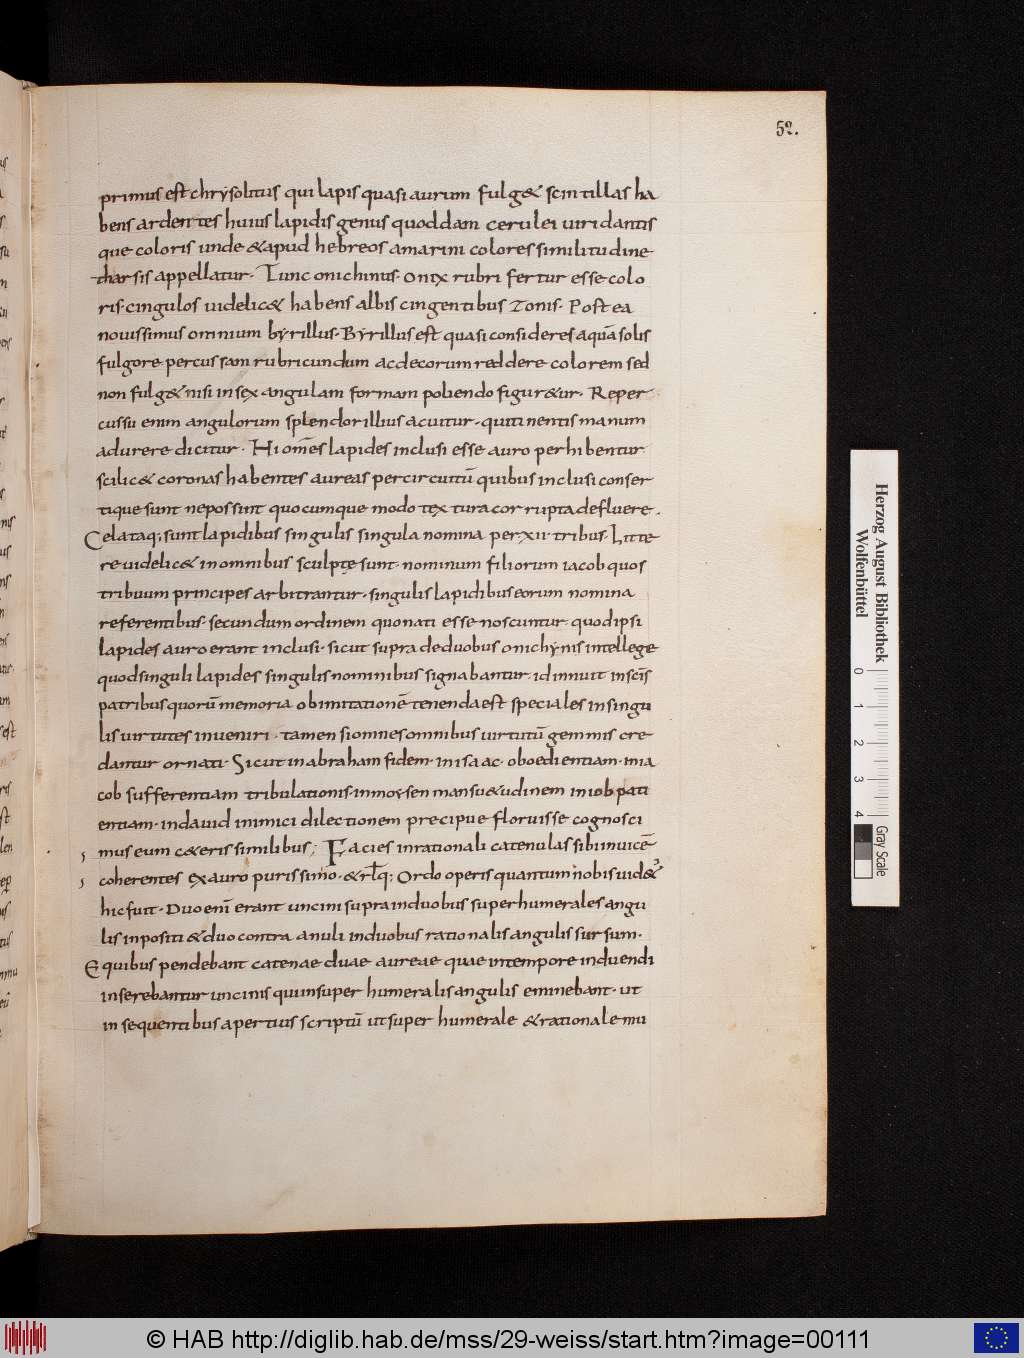 52.
primus est chrysolitus qui lapis quasi aurum fulg& scintillas ha
bens ardentes huius lapidis genus quoddam cerulei uiridantis
que coloris unde &apud hebreos amarini colores similitudine
tharsis appellatur. Tunc onichinus. onix rubri fertur esse colo
ris. cingulos uidelic& habens albis cingentibus zonis. Post ea
nouissimus omnium byrillus. Byrillus est quasi consideres aquā solis
fulgore percussam rubricundum ac decorum reddere colorem sed
non fulg& nisi in sex angulam formam poliendo figur&ur. Reper
cussu enim angulorum splendor illius acuitur. quitinentis manum
adurere dicitur. Hi om̄es lapides inclusi esse auro perhibentur
scilic& coronas habentes aureas per circuitū quibus inclusi conser
tique sunt ne possint quocumque modo textura corrupta defluere.
Celataq; sunt lapidibus singulis singula nomina per xii. tribus. Litte
re uidelic& in omnibus sculptę sunt. nominum filiorum iacob quos
tribuum principes arbitrantur. singulis lapidibus eorum nomina
referentibus. secundum ordinem quo nati esse noscuntur. quod ipsi
lapides auro erant inclusi. sicut supra de duobus onichynis intellege
quod singuli lapides singulis nominibus signabantur. id innuit in sc̄is
patribus quorū memoria ob imitationē tenenda est speciales in singu
lis uirtutes inueniri. tamen si omnes omnibus uirtutū gemmis cre
dantur ornati. Sicut in abraham fidem. in isaac. oboedientiam. in ia
cob sufferentiam tribulationis. in moysen mansu&udinem in iob pati
entiam. in dauid inimici dilectionem precipue floruisse cognosci
mus eum c&eris similibus; Facies in rationali catenulas sibi inuicē
coherentes ex auro purissimo. &rłq; Ordo operis quantum nobis uid&
hic fuit. Duo enī erant uncini supra in duobus superhumerales angu
lis inpositi & duo contra anuli in duobus rationalis angulis sursum.
E quibus pendebant catenae duae aureae quae in tempore induendi
inserebantur uncinis qui in superhumeralis angulis eminebant. ut
in sequentibus apertius scriptū ut superhumerale &rationale mu
Herzog August Bibliothek
Wolfenbüttel
0 1 2 3 4
Gray Scale
© HAB http://diglib.hab.de/mss/29-weiss/start.htm?image=00111